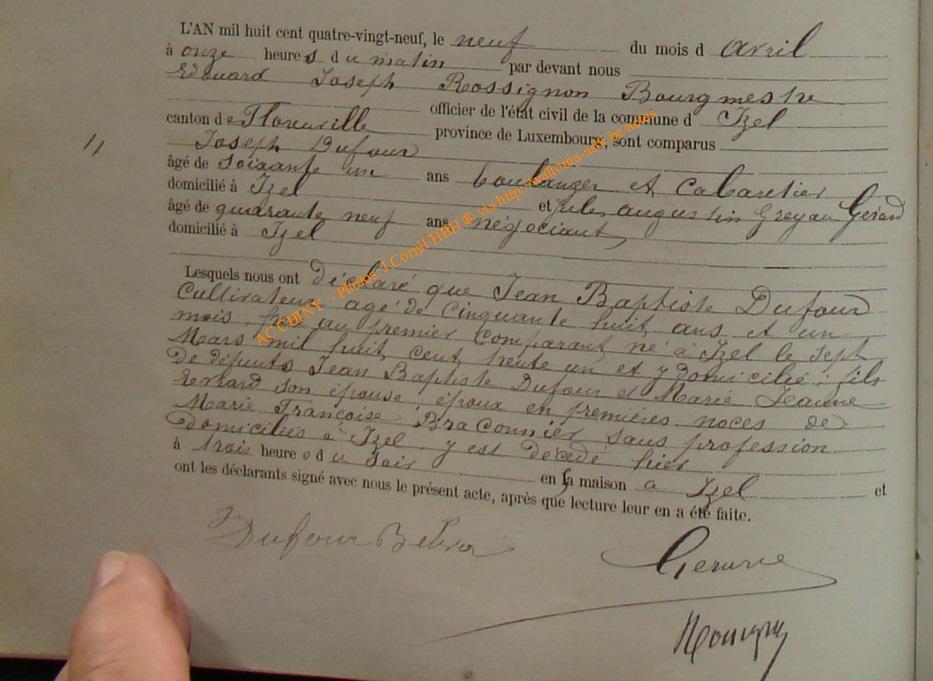 L'AN mil huit cent quatre-vingt-neuf, le neuf du mois d avril
à onze heures du matin par devant nous
Edouard Joseph Rossignon Bourgmestre
officier de l'état civil de la commune d Izel
canton de Florenville province de Luxembourg, sont comparus
11
Joseph Dufour
âgé de soixante un ans boulanger et Cabaretier
domicilié à Izel et Jules augustin Gérard
âgé de quarante neuf ans négociant
domicilié à Izel
Lesquels nous ont déclaré que Jean Baptiste Dufour
Cultivateur agé de Cinquante huit ans et un
mois, au premier Comparant né à Izel le sept
Mars mil huit cent trente un et y domicilié; fils
De défunts Jean Baptiste Dufour et Marie Jeanne
son épouse, époux en premières noces de
Marie Françoise Braconnier sans profession
domiciliés à Izel, y est décédé hier
à trois heures du soir en sa maison a Izel et
ont les déclarants signé avec nous le présent acte, après que lecture leur en a été faite.
AC CHINY - Photos J.Cornil/HBH ® via http://wallonia-asbl.be/actes
Dufour